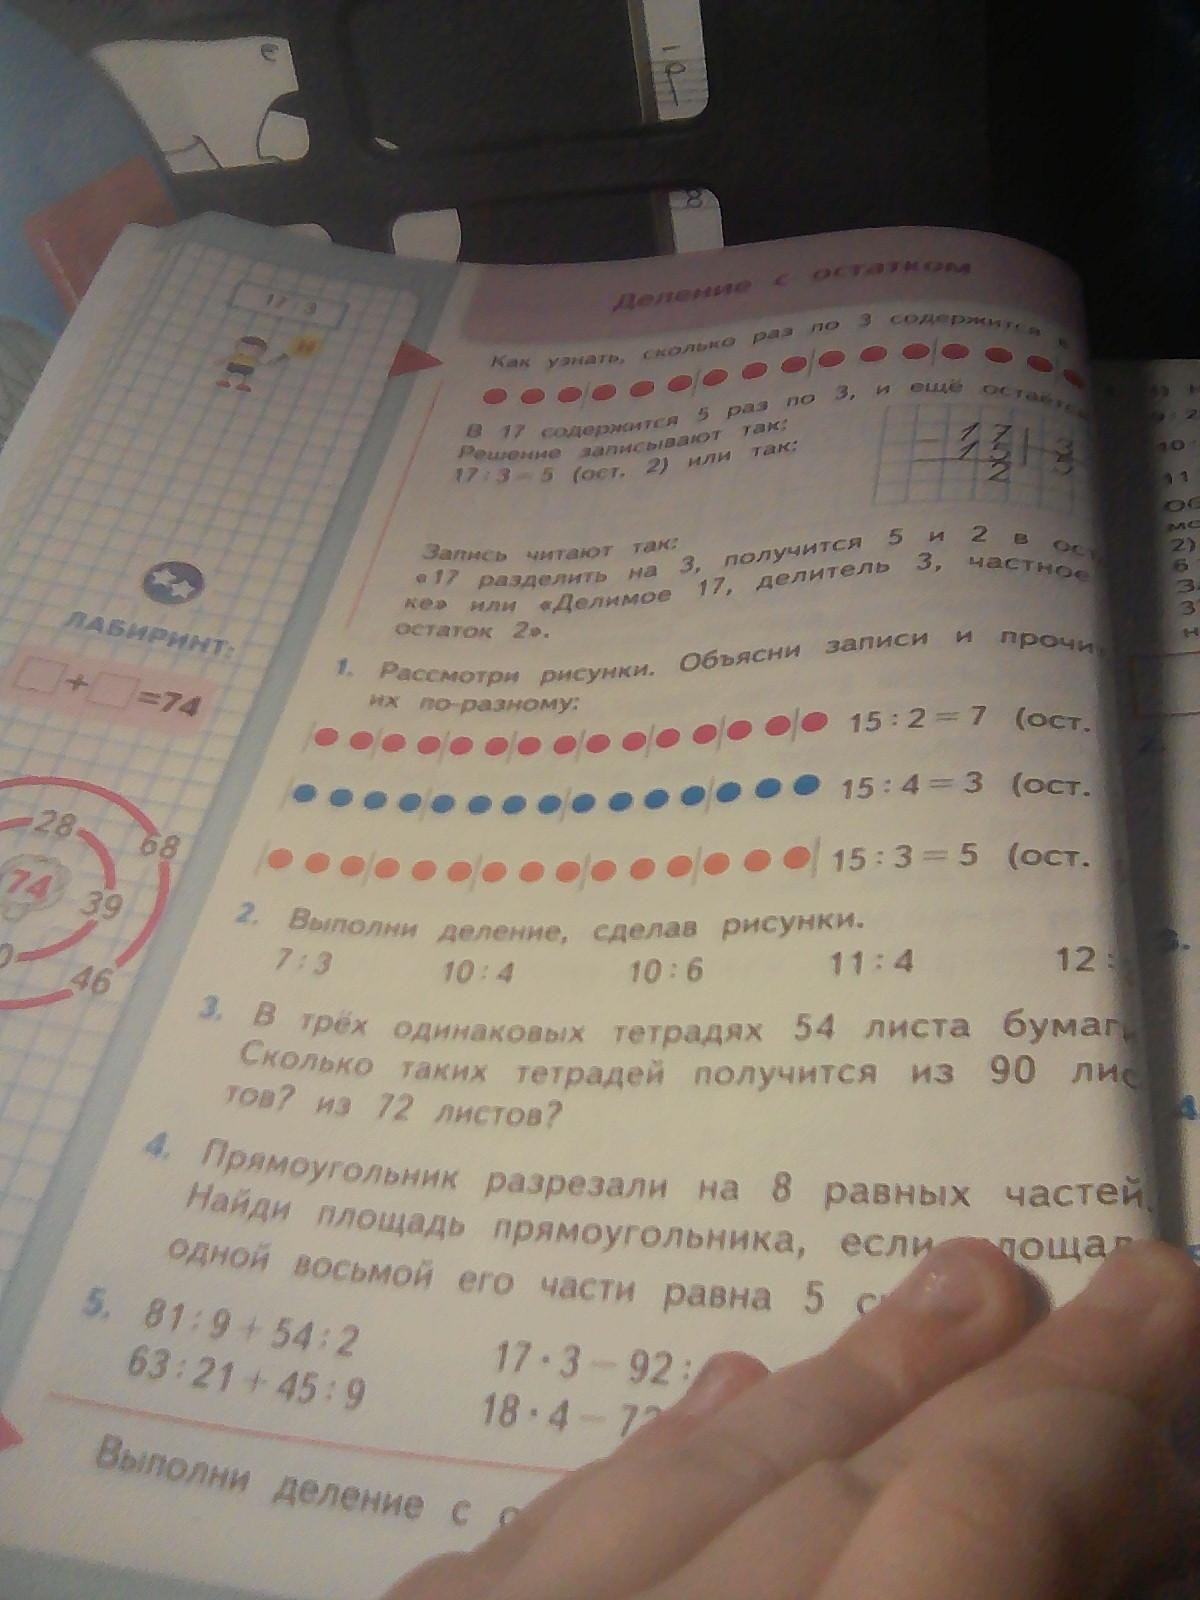 17 : 3
Деление с остатком
Как узнать, сколько раз по 3 содержится в
В 17 содержится 5 раз по 3, и ещё остаётся
Решение записывают так:
17 : 3 = 5 (ост. 2) или так:
17 3
15 5
2
Запись читают так:
«17 разделить на 3, получится 5 и 2 в
ке» или «Делимое 17, делитель 3, частное
остаток 2».
1. Рассмотри рисунки. Объясни записи и
их по-разному:
15 : 2 = 7 (ост.
15 : 4 = 3 (ост.
15 : 3 = 5 (ост.
2. Выполни деление, сделав рисунки.
7 : 3 10 : 4 10 : 6 11 : 4 12 :
3. В трёх одинаковых тетрадях 54 листа
Сколько таких тетрадей получится из 90 лис
тов? из 72 листов?
4. Прямоугольник разрезали на 8 равных частей.
Найди площадь прямоугольника, если
одной восьмой его части равна 5
5. 81 : 9 + 54 : 2 17 · 3 − 92 :
63 : 21 + 45 : 9 18 · 4 − 72
Выполни деление с
ЛАБИРИНТ:
+ = 74
28
68
74
39
46